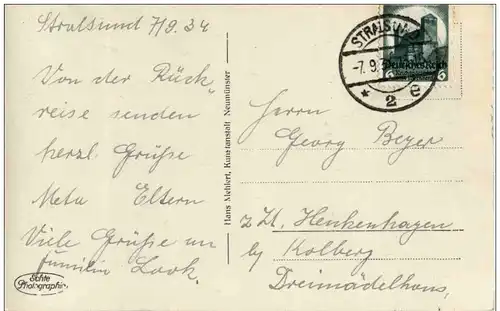 Stralsund 7/9.34
Von der Rück-
reise senden
herzl. Grüße
Meta Eltern
Viele Grüße an
Familie Look.
Echte
Photographie
Hans Mehlert, Kunstanstalt Neumünster
STRALSUND
-7.9.
* 2 e
Deutsches Reich
6 6
Herrn
Georg Beyer
z Zt. Henkenhagen
by Kolberg
Dreimädelhaus,